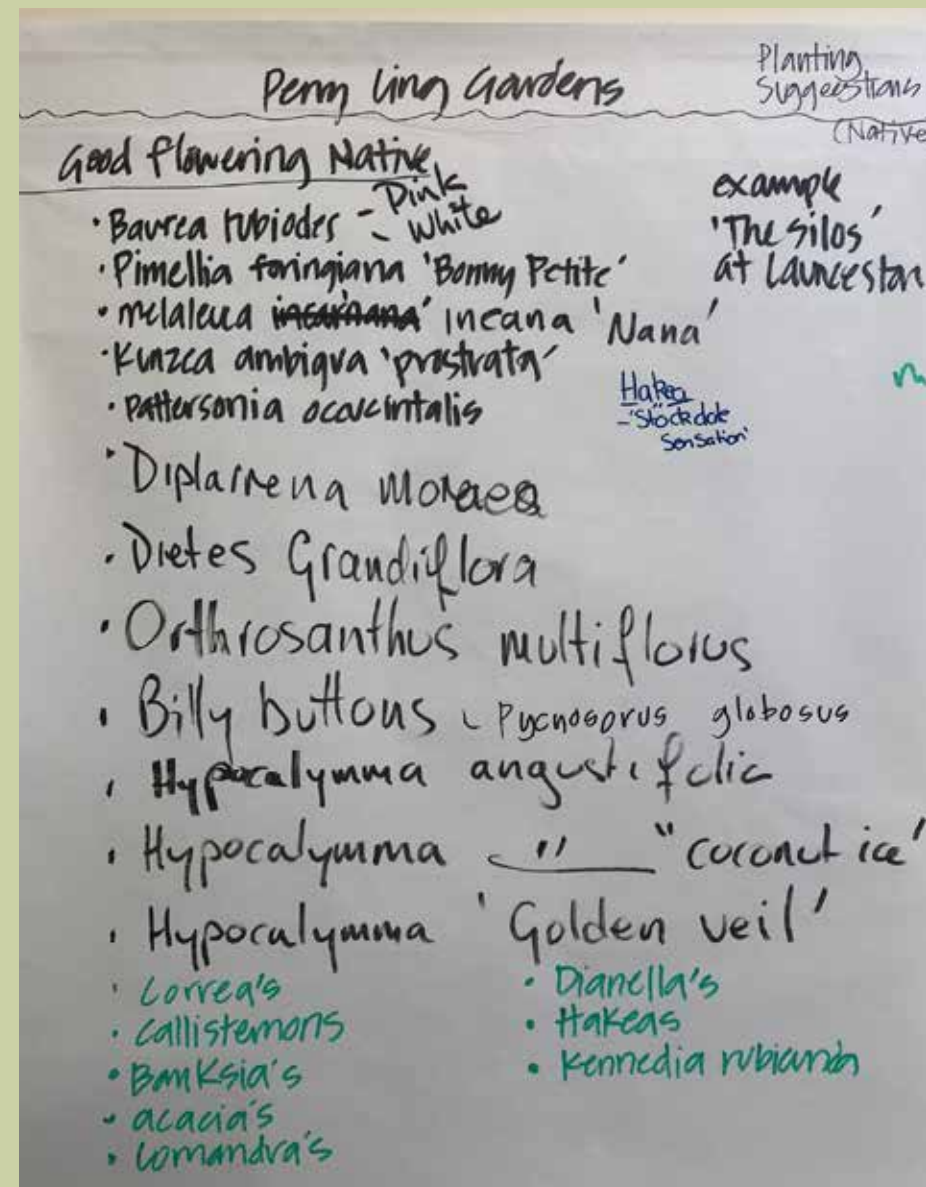 Penny Ling Gardens
Planting
Suggestions
(Native
Good flowering Native
• Baurea rubiodes - Pink
- White
• Pimellia foringiana 'Bonny Petite'
• melaleuca incarnana' incana 'Nana'
• Kunzea ambigua 'prostrata'
• pattersonia
example
'The Silos'
at Launceston
Hakea
- 'Stockdale
Sensation'
• Diplarrena Moraea
• Dietes Grandiflora
• Orthrosanthus multiflorus
• Billy buttons - Pycnosorus globosus
• Hypocalymma angustifolia
• Hypocalymma " "coconut ice'
• Hypocalymma 'Golden veil'
• Correa's
• Callistemons
• Banksia's
• acacia's
• Lomandra's
• Dianella's
• Hakeas
• Kennedia